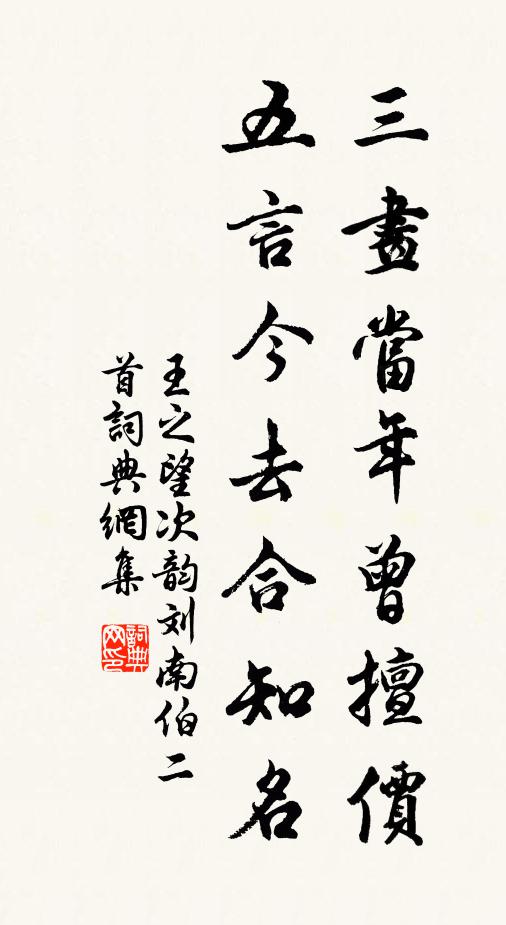 三畫當年曾擅價
五言今去合知名
王之望次韵刘南伯二
首詞典網集
詞典网印